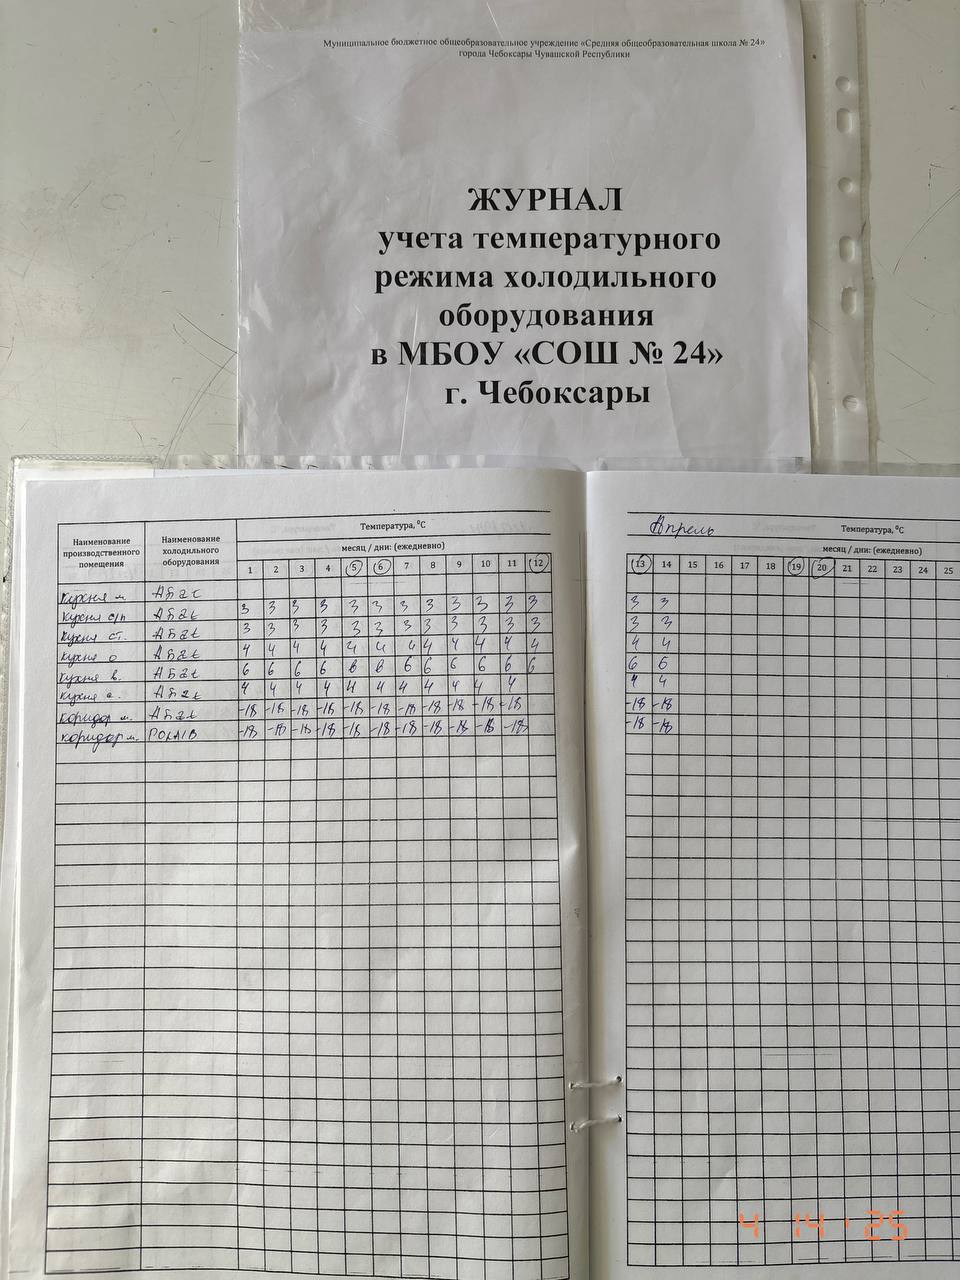 Муниципальное бюджетное общеобразовательное учреждение «Средняя общеобразовательная школа № 24»
города Чебоксары Чувашской Республики
ЖУРНАЛ
учета температурного
режима холодильного
оборудования
в МБОУ «СОШ № 24»
г. Чебоксары
Наименование производственного помещения
Наименование холодильного оборудования
Температура, ⁰С
месяц / дни: (ежедневно)
1 2 3 4 5 6 7 8 9 10 11 12
Кухня м Абат
Кухня с/п Абат 3 3 3 3 3 3 3 3 3 3 3 3
Кухня ст. Абат 3 3 3 3 3 3 3 3 3 3 3 3
Кухня о Абат 4 4 4 4 4 4 4 4 4 4 4 4
Кухня в. Абат 6 6 6 6 6 6 6 6 6 6 6 6
Кухня Абат 4 4 4 4 4 4 4 4 4 4 4
коридор м. Абат -18 -18 -18 -18 -18 -18 -18 -18 -18 -18 -18
коридор м. -18 -18 -18 -18 -18 -18 -18 -18 -18 -18 -18
Апрель Температура, ⁰С
месяц / дни: (ежедневно)
13 14 15 16 17 18 19 20 21 22 23 24 25
3 3
3 3
4 4
6 6
4 4
-18 -18
-18 -18
4 14 · 25